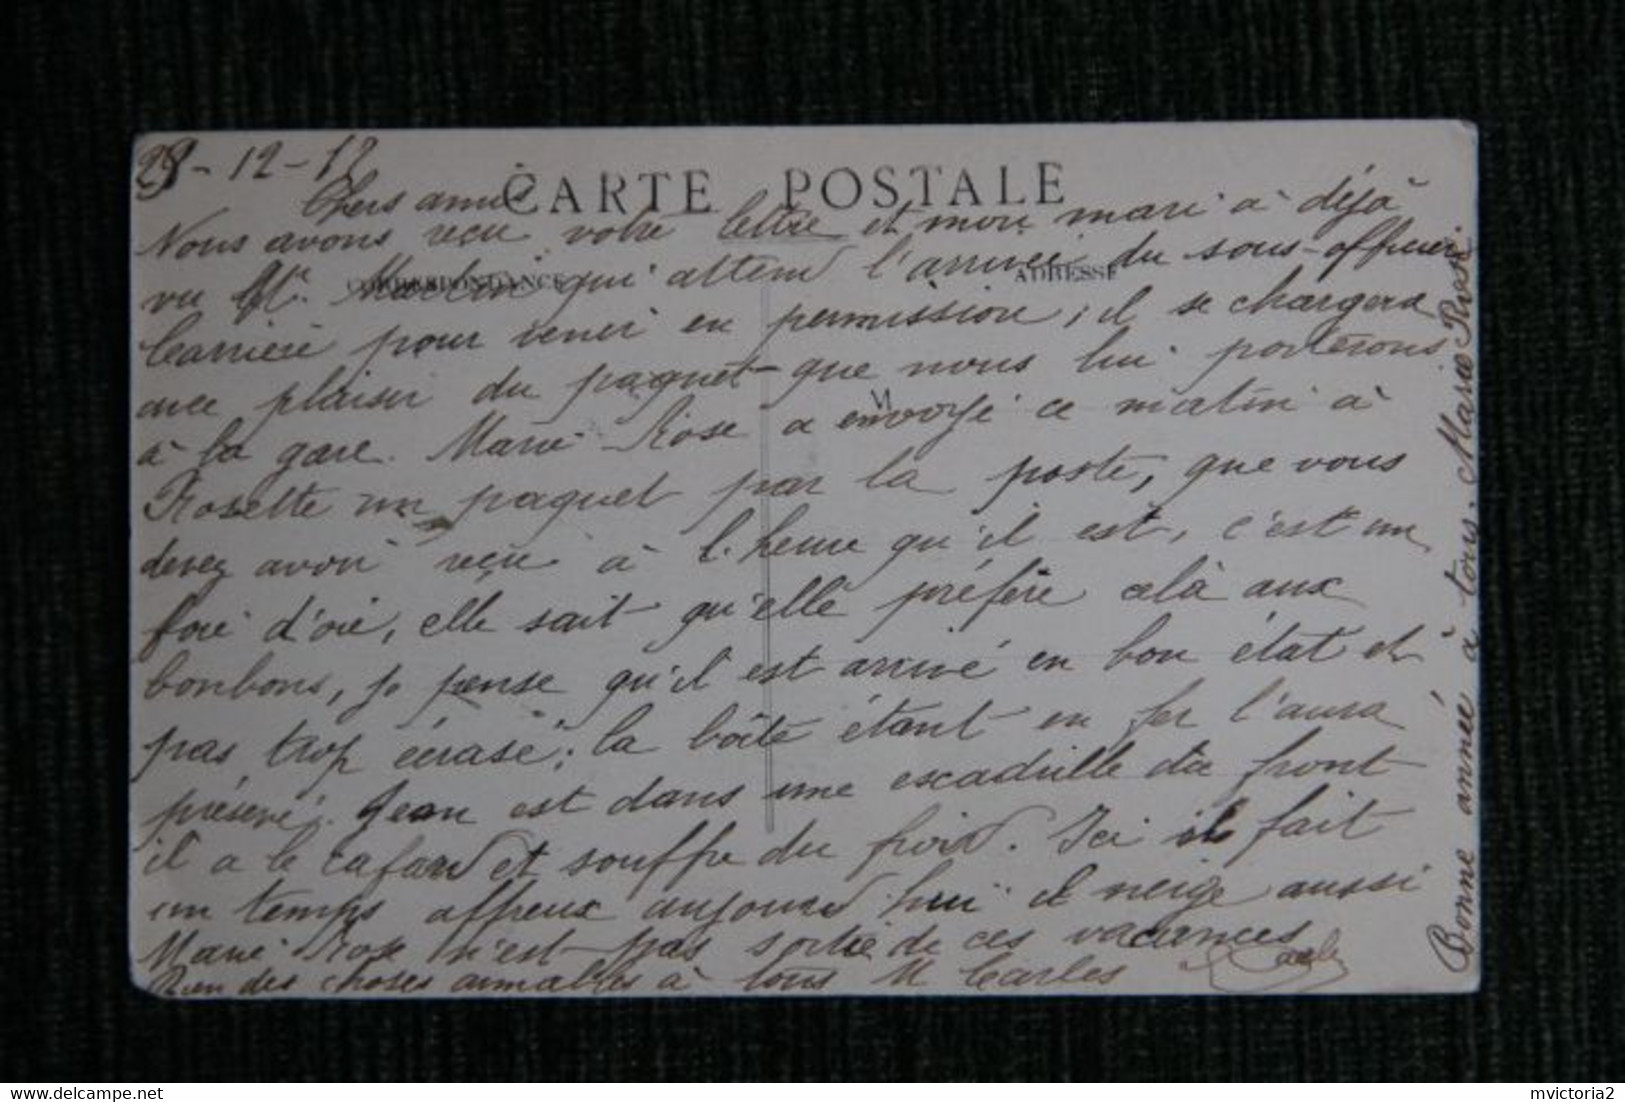 CARTE POSTALE
CORRESPONDANCE
ADRESSE
M
-12-12
Chers amis
Nous avons reçu votre lettre et mon mari à déjà
vu Mr. qui attend l'arrivée du sous-officier
Carrière pour venir en permission; il se chargera
avec plaisir du paquet que nous lui porterons
à la gare. Marie-Rose a envoyé ce matin à
Rosette un paquet par la poste, que vous
devez avoir reçu à l'heure qu'il est, c'est un
foie d'oie, elle sait qu'elle préfère celà aux
bonbons, je pense qu'il est arrivé en bon état et
pas trop écrasé; la boîte étant en fer l'aura
préservé. Jean est dans une escadrille du front
il a le cafard et souffre du froid. Ici il fait
un temps affreux aujourd'hui il neige aussi
Marie Rose n'est pas sortie de ces vacances
des choses aimables à tous M Carles
Bonne année à tous. Marie Rose
mvictoria2